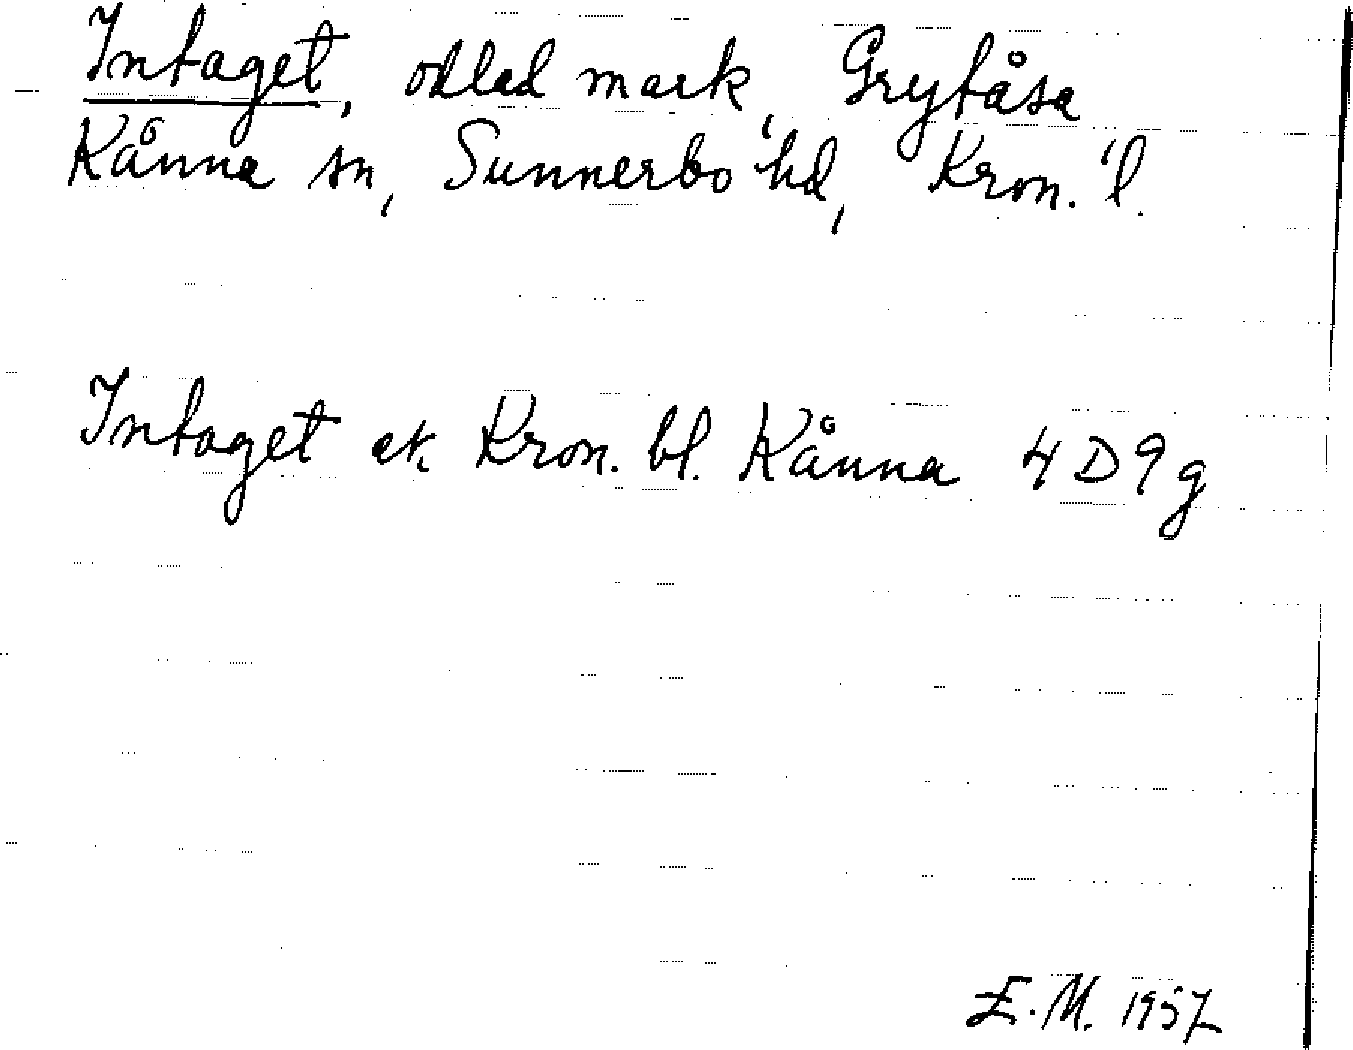 Intaget, odlad mark, Grytåsa
Kånna sn, Sunnerbo hd, Kron. l.
Intaget ek. Kron. bl. Kånna 4D9g
E.M. 1957